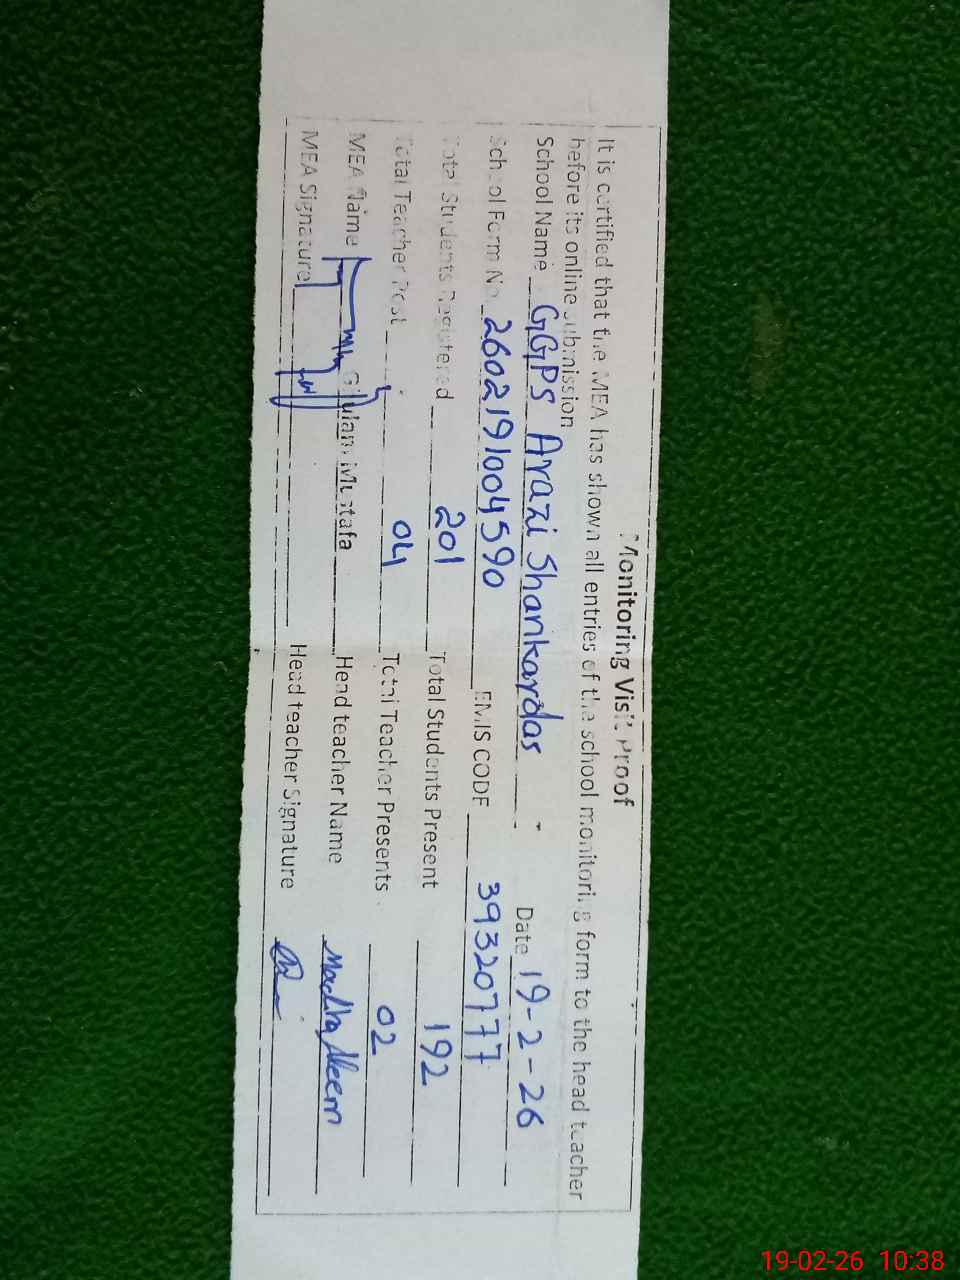 Monitoring Visit Proof
It is certified that the MEA has shown all entries of the school monitoring form to the head teacher
before its online submission
School Name GGPS Arazi Shankardas Date 19-2-26
School Form No. 2602191004590 EMIS CODE 39320777
Total Students Registered 201 Total Students Present 192
Total Teacher Post 04 Total Teacher Presents 02
MEA Name Ghulam Mustafa Head teacher Name Madiha Aleem
MEA Signature Head teacher Signature
19-02-26 10:38